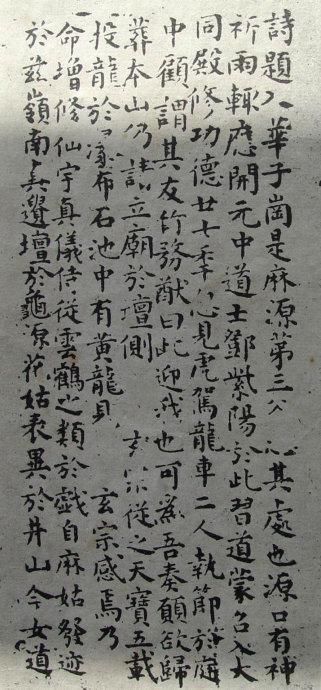 詩題入華子崗是麻源第三其處也源口有神
祈雨輒應開元中道士鄧紫陽於此習道蒙召入大
同殿修功德廿七秊忽見虎駕龍車二人執節於庭
中顧謂其友竹務猷曰此迎我也可爲吾奏願欲歸
葬本山仍請立廟於壇側 從之天寶五載
投龍於瀑布石池中有黃龍見 玄宗感焉乃
命增修仙宇真儀侍從雲鶴之類於戲自麻姑發迹
於茲嶺南真遺壇於龜源花姑表異於井山今女道